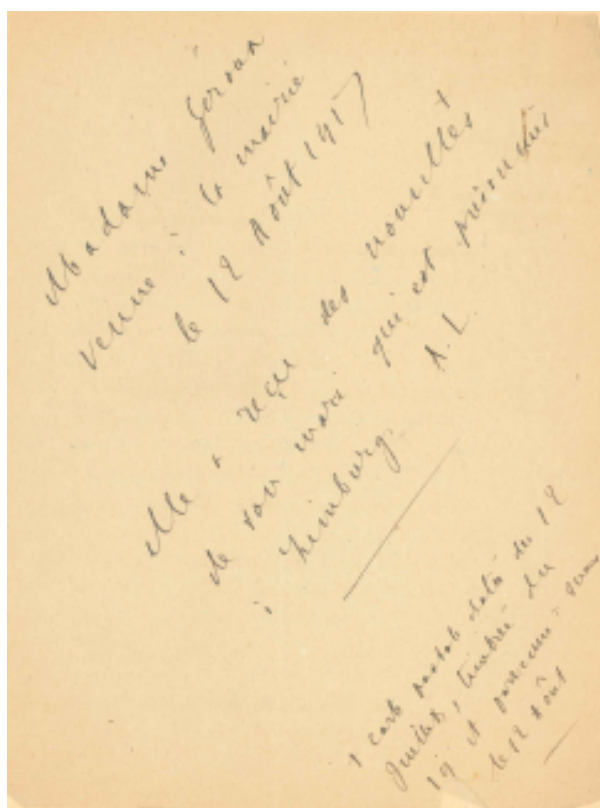 Madame Géroux
venue à la mairie
le 12 Août 1917
elle a reçu des nouvelles
de son mari qui est prisonnier
à Limburg.
A. L.
1 carte postale datée du 12
Juillet, timbrée du
19 et parvenue à
le 12 Août